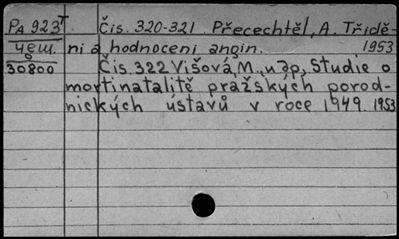 PA 923T. Čís. 320-321. Přecechtěl, A. Třídě-
чеш. ní a hodnocení angin. 1953
0
30800 Čís. 322 Višová, M., u dp., Studie o
mortinatalitě pražských porod-
nických ústavů v roce 1949. 1953